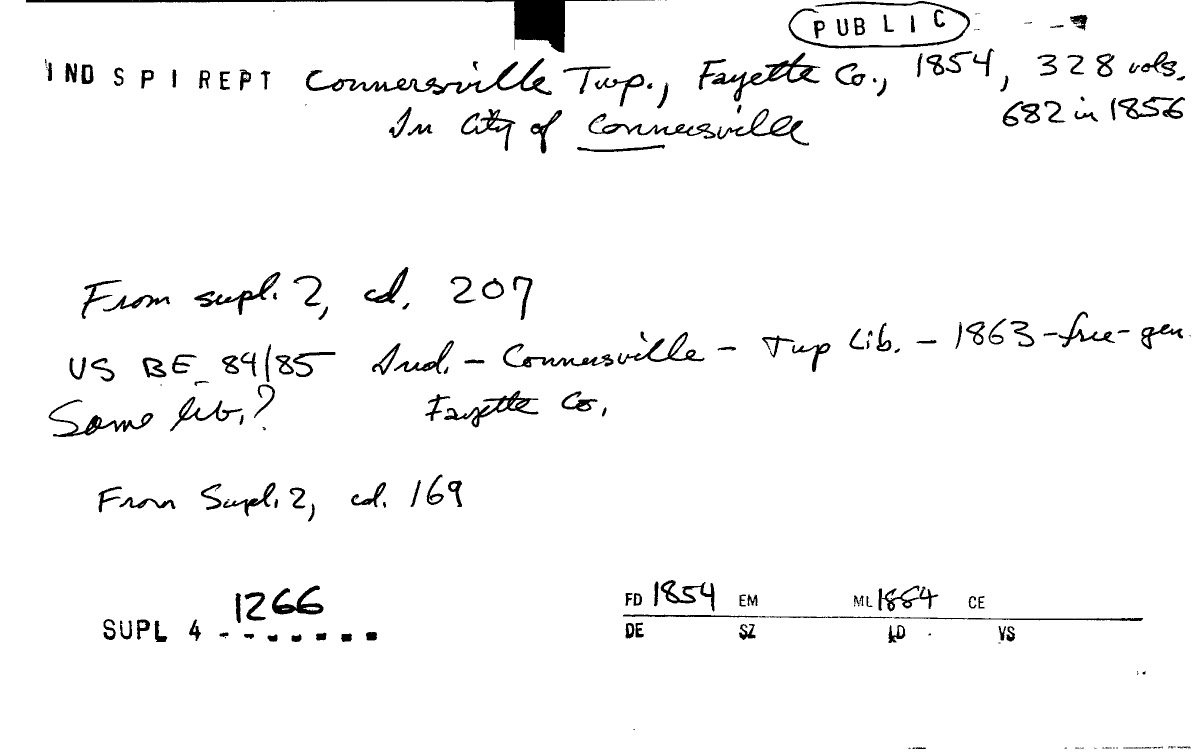 PUBLIC
IND SPI REPT Connersville Twp., Fayette Co., 1854, 328 vols.
682 in 1856
In City of Connersville
From supl. 2, cd. 207
US BE 84/85 Ind. - Connersville - Twp Lib. - 1863 - free - gen.
Same lib.? Fayette Co.
From Supl. 2, cd. 169
1266
SUPL 4 -------
FD 1854 EM ML 1884 CE
DE SZ LD VS